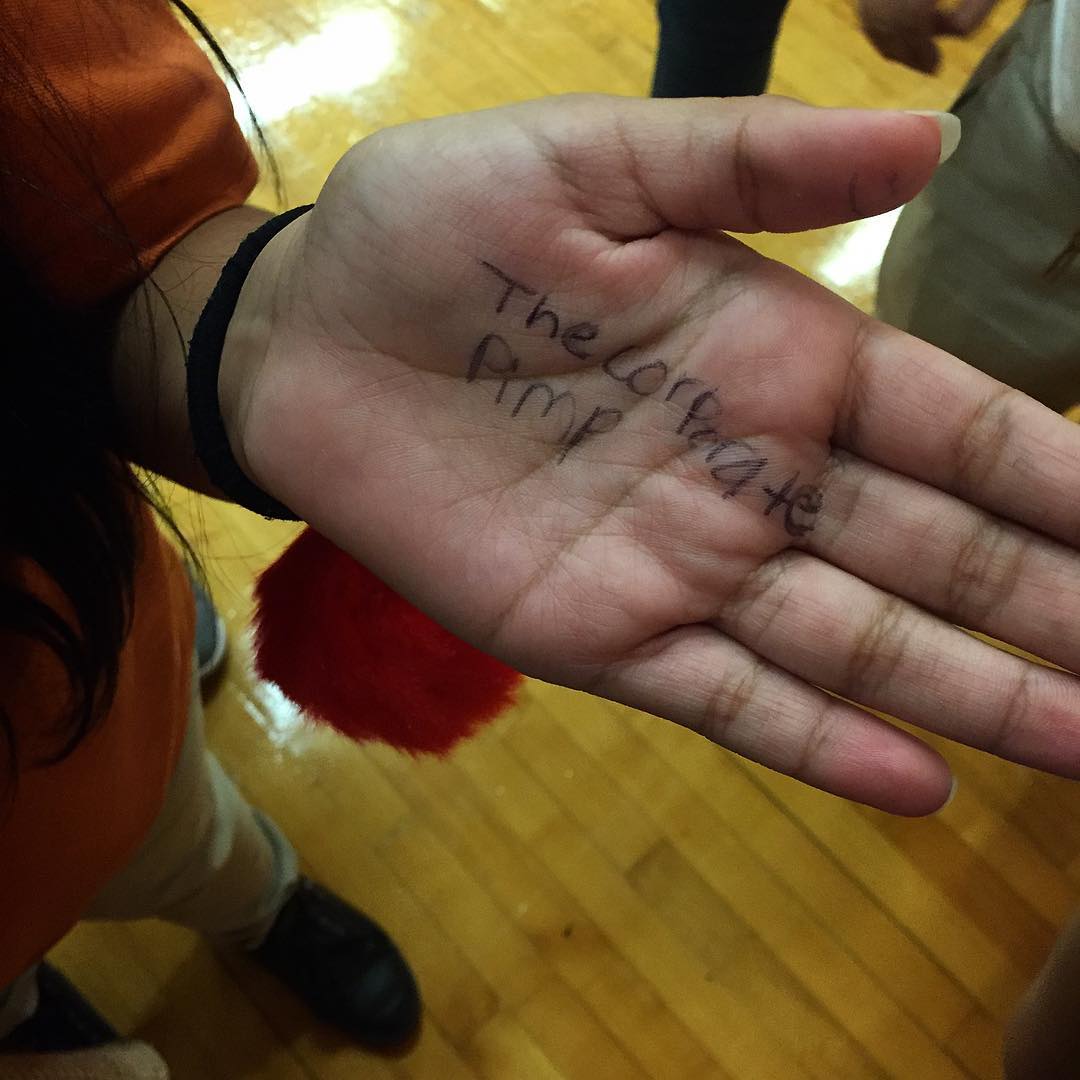 The corparate
Pimp